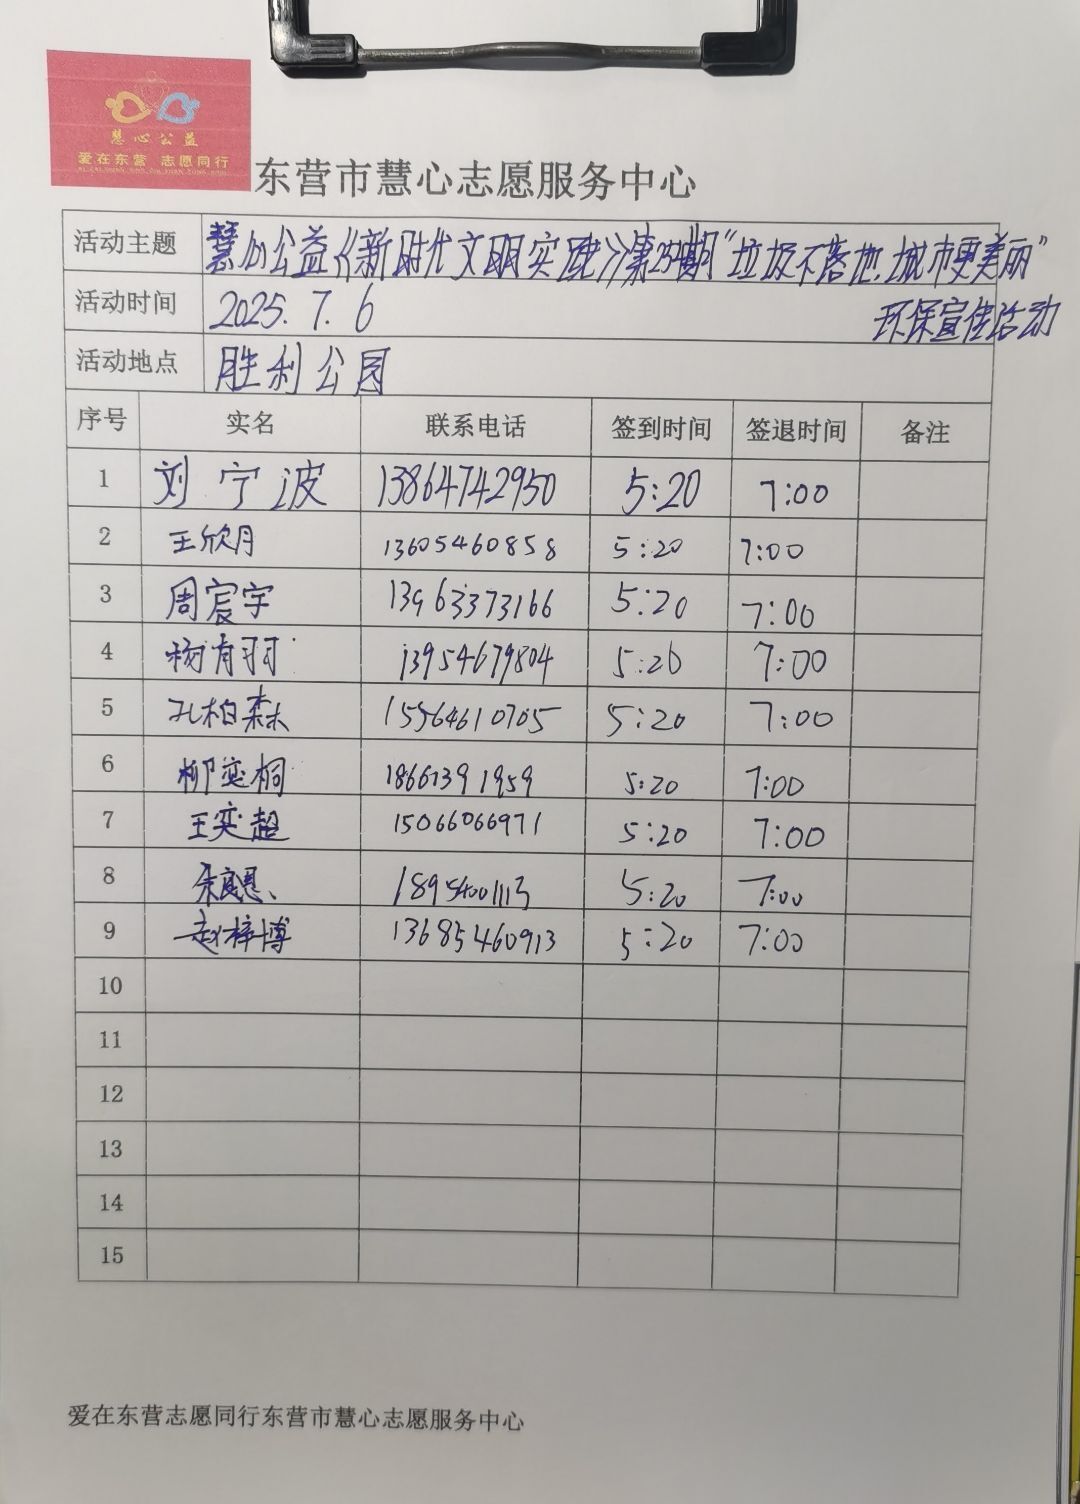 慧心公益
爱在东营 志愿同行
东营市慧心志愿服务中心
活动主题 慧心公益《新时代文明实践》第234期“垃圾不落地.城市更美丽”
环保宣传活动
活动时间 2025.7.6
活动地点 胜利公园
序号 实名 联系电话 签到时间 签退时间 备注
1 刘宁波 13864742950 5:20 7:00
2 王欣月 13605460858 5:20 7:00
3 周宸宇 13963373166 5:20 7:00
4 杨有羽 13954679804 5:20 7:00
5 孔柏森 15564610705 5:20 7:00
6 柳奕桐 18661391959 5:20 7:00
7 王奕超 15066066971 5:20 7:00
8 18954001113 5:20 7:00
9 赵梓博 13685460913 5:20 7:00
10
11
12
13
14
15
爱在东营志愿同行东营市慧心志愿服务中心